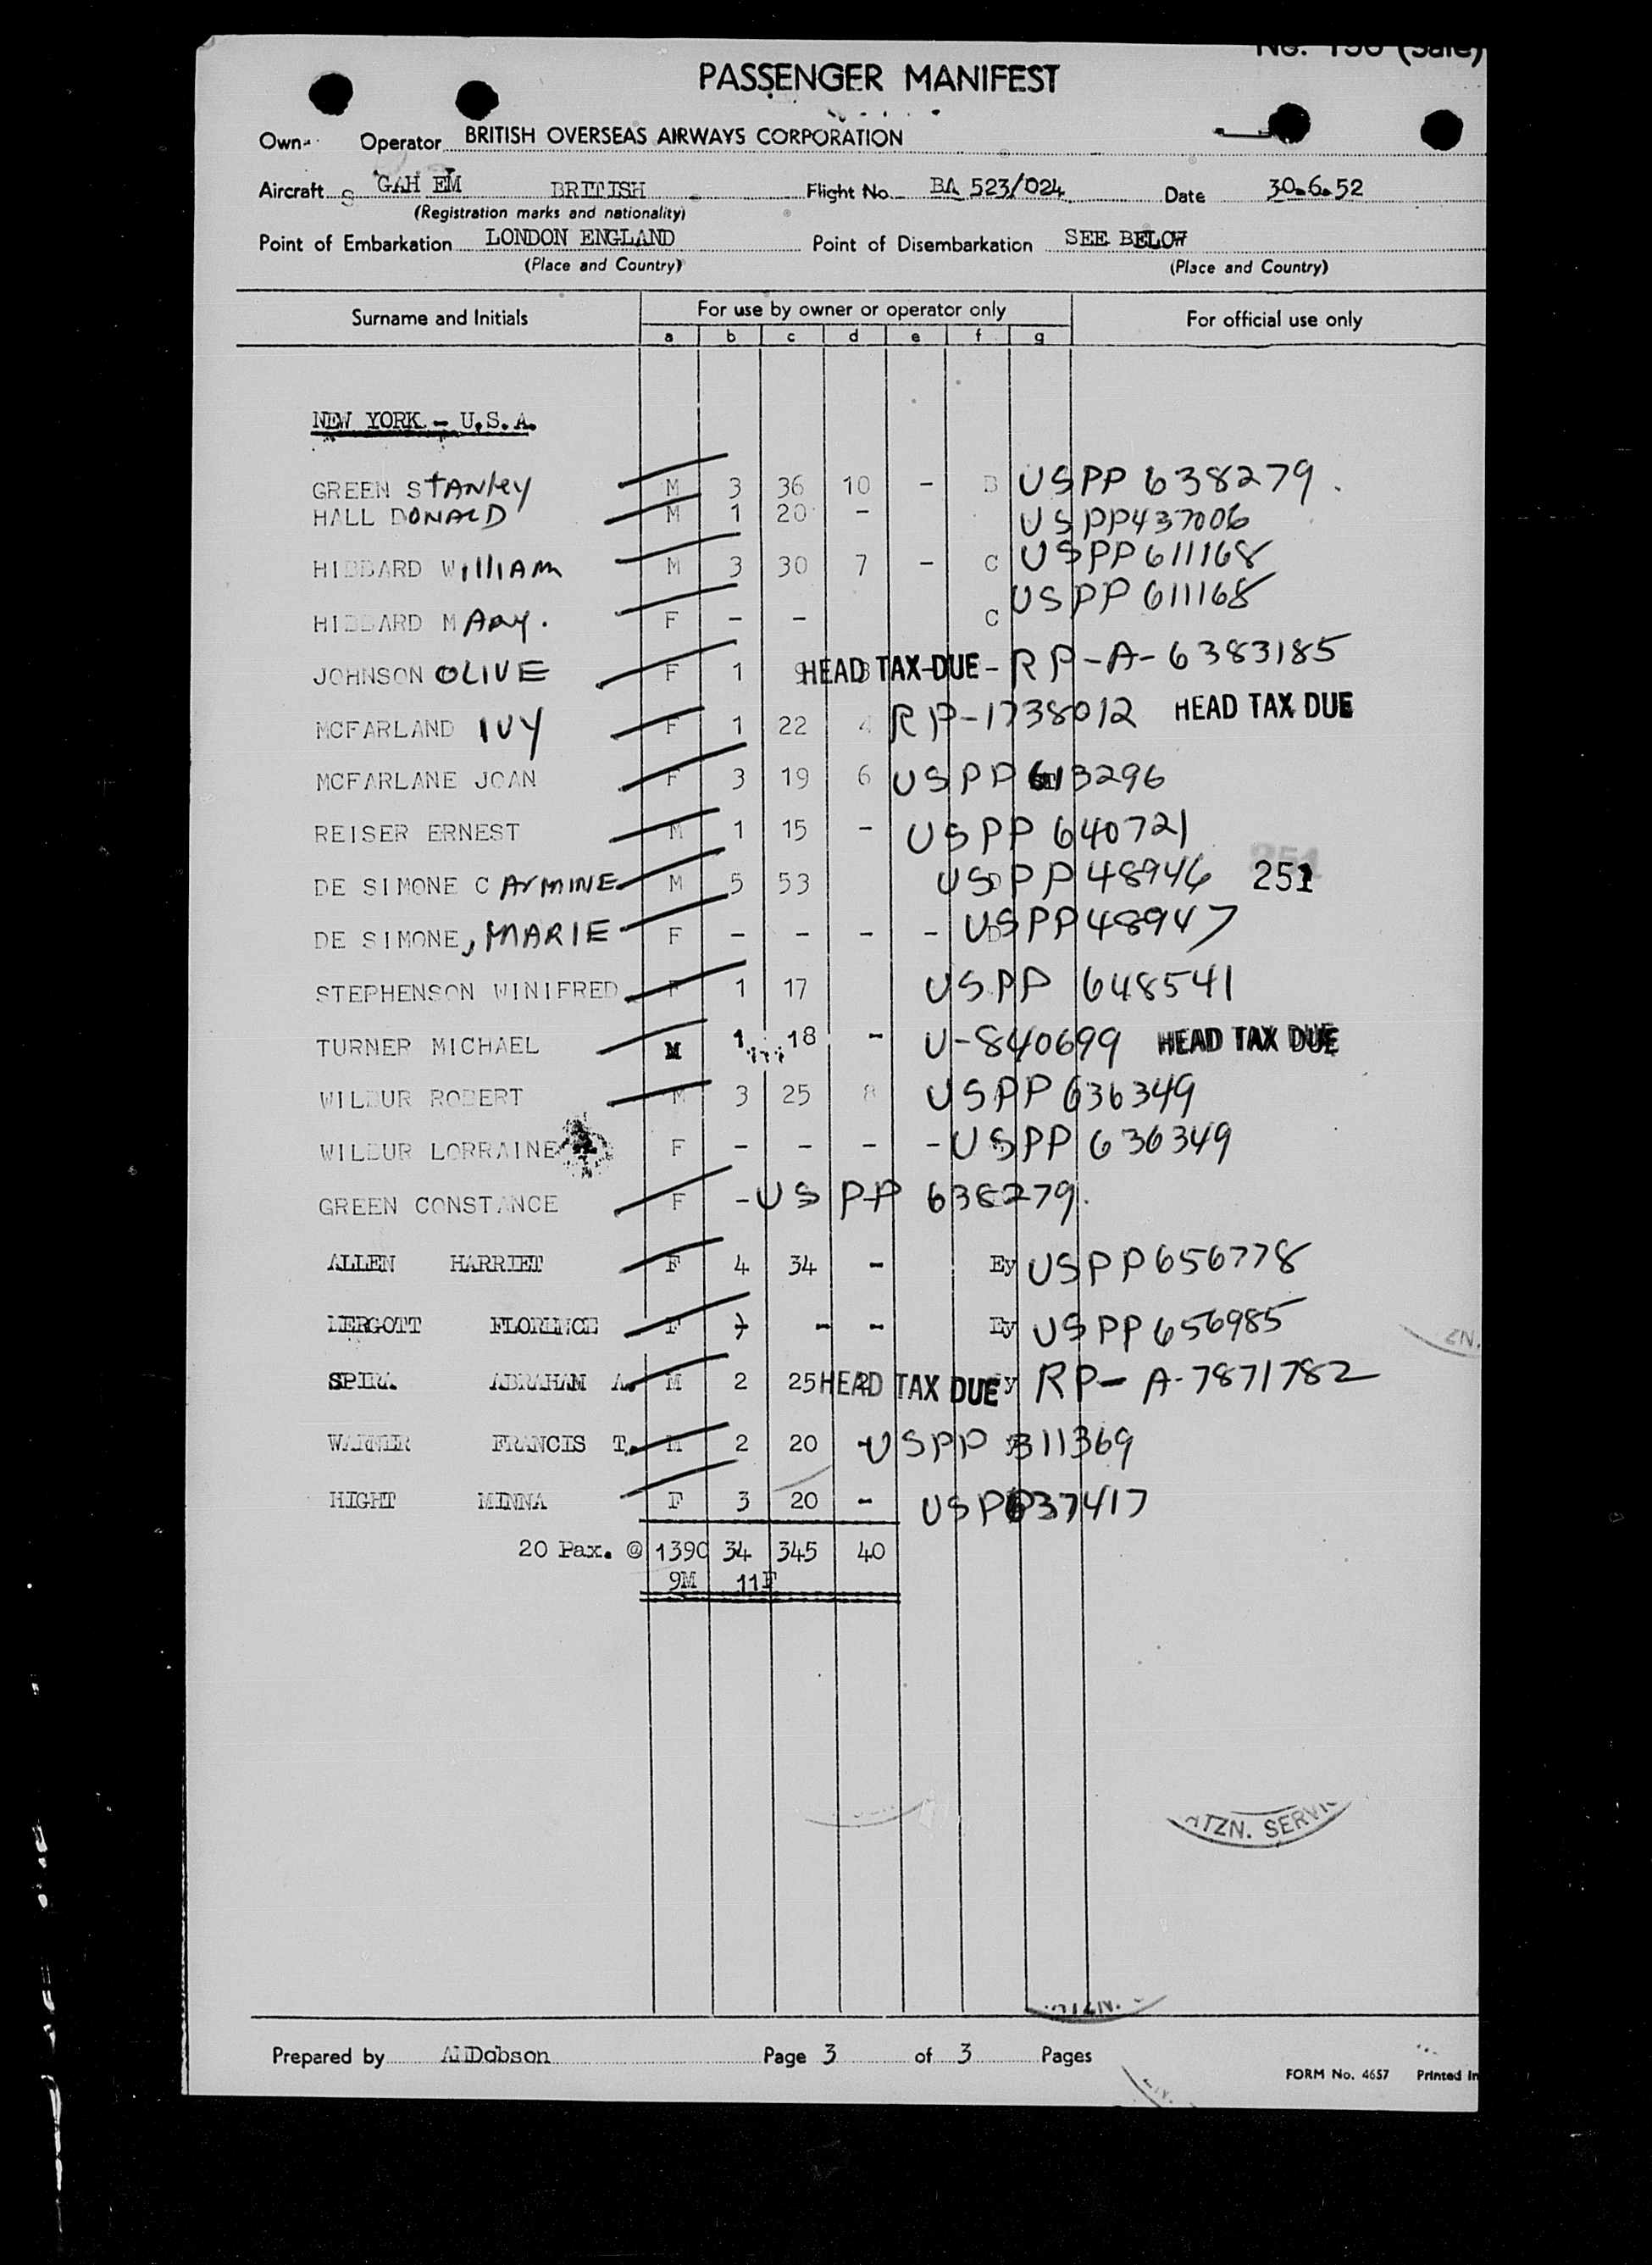 No. 136 (Sale)
PASSENGER MANIFEST
Own Operator BRITISH OVERSEAS AIRWAYS CORPORATION
Aircraft GAH EM BRITISH Flight No. BA 523/024 Date 30.6.52
(Registration marks and nationality)
Point of Embarkation LONDON ENGLAND Point of Disembarkation SEE BELOW
(Place and Country) (Place and Country)
Surname and Initials For use by owner or operator only For official use only
a b c d e f g
NEW YORK - U.S.A.
GREEN STANley M 3 36 10 - B USPP 638279.
HALL DONALD M 1 20 - USPP437006
HIBBARD WillIAM M 3 30 7 - C USPP611168
HIBBARD MARY. F - - C USPP 611168
JOHNSON OLIVE F 1 9 HEAD TAX DUE - RP-A-6383185
MCFARLAND IVY F 1 22 4 RP-1738012 HEAD TAX DUE
MCFARLANE JOAN F 3 19 6 USPP 613296
REISER ERNEST M 1 15 - USPP 640721
DE SIMONE CArMINE M 5 53 USPP48946 251
DE SIMONE, MARIE F - - - - USPP48947
STEPHENSON WINIFRED F 1 17 USPP 648541
TURNER MICHAEL M 1 18 - U-840699 HEAD TAX DUE
WILBUR ROBERT M 3 25 8 USPP 636349
WILBUR LORRAINE F - - - - USPP 636349
GREEN CONSTANCE F - USPP 638279.
ALLEN HARRIET F 4 34 - Ey USPP656778
MERGOTT FLORENCE F - - - Ey USPP656985
SPIRA ABRAHAM A. M 2 25 2 HEAD TAX DUE y RP-A-7871782
WARNER FRANCIS T. M 2 20 - USPP 311369
HIGHT MINNA F 3 20 - USPP637417
20 Pax. @ 1390 34 345 40
9M 11F
ATZN. SERVI
Prepared by AMDobson Page 3 of 3 Pages
FORM No. 4657 Printed In